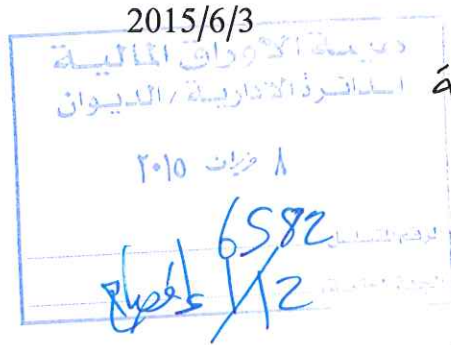 2015/6/3
هيئة الاوراق المالية
الدائرة الادارية / الديوان
٨ حزيران ٢٠١٥
الرقم المتسلسل 6582
الجهة المختصة